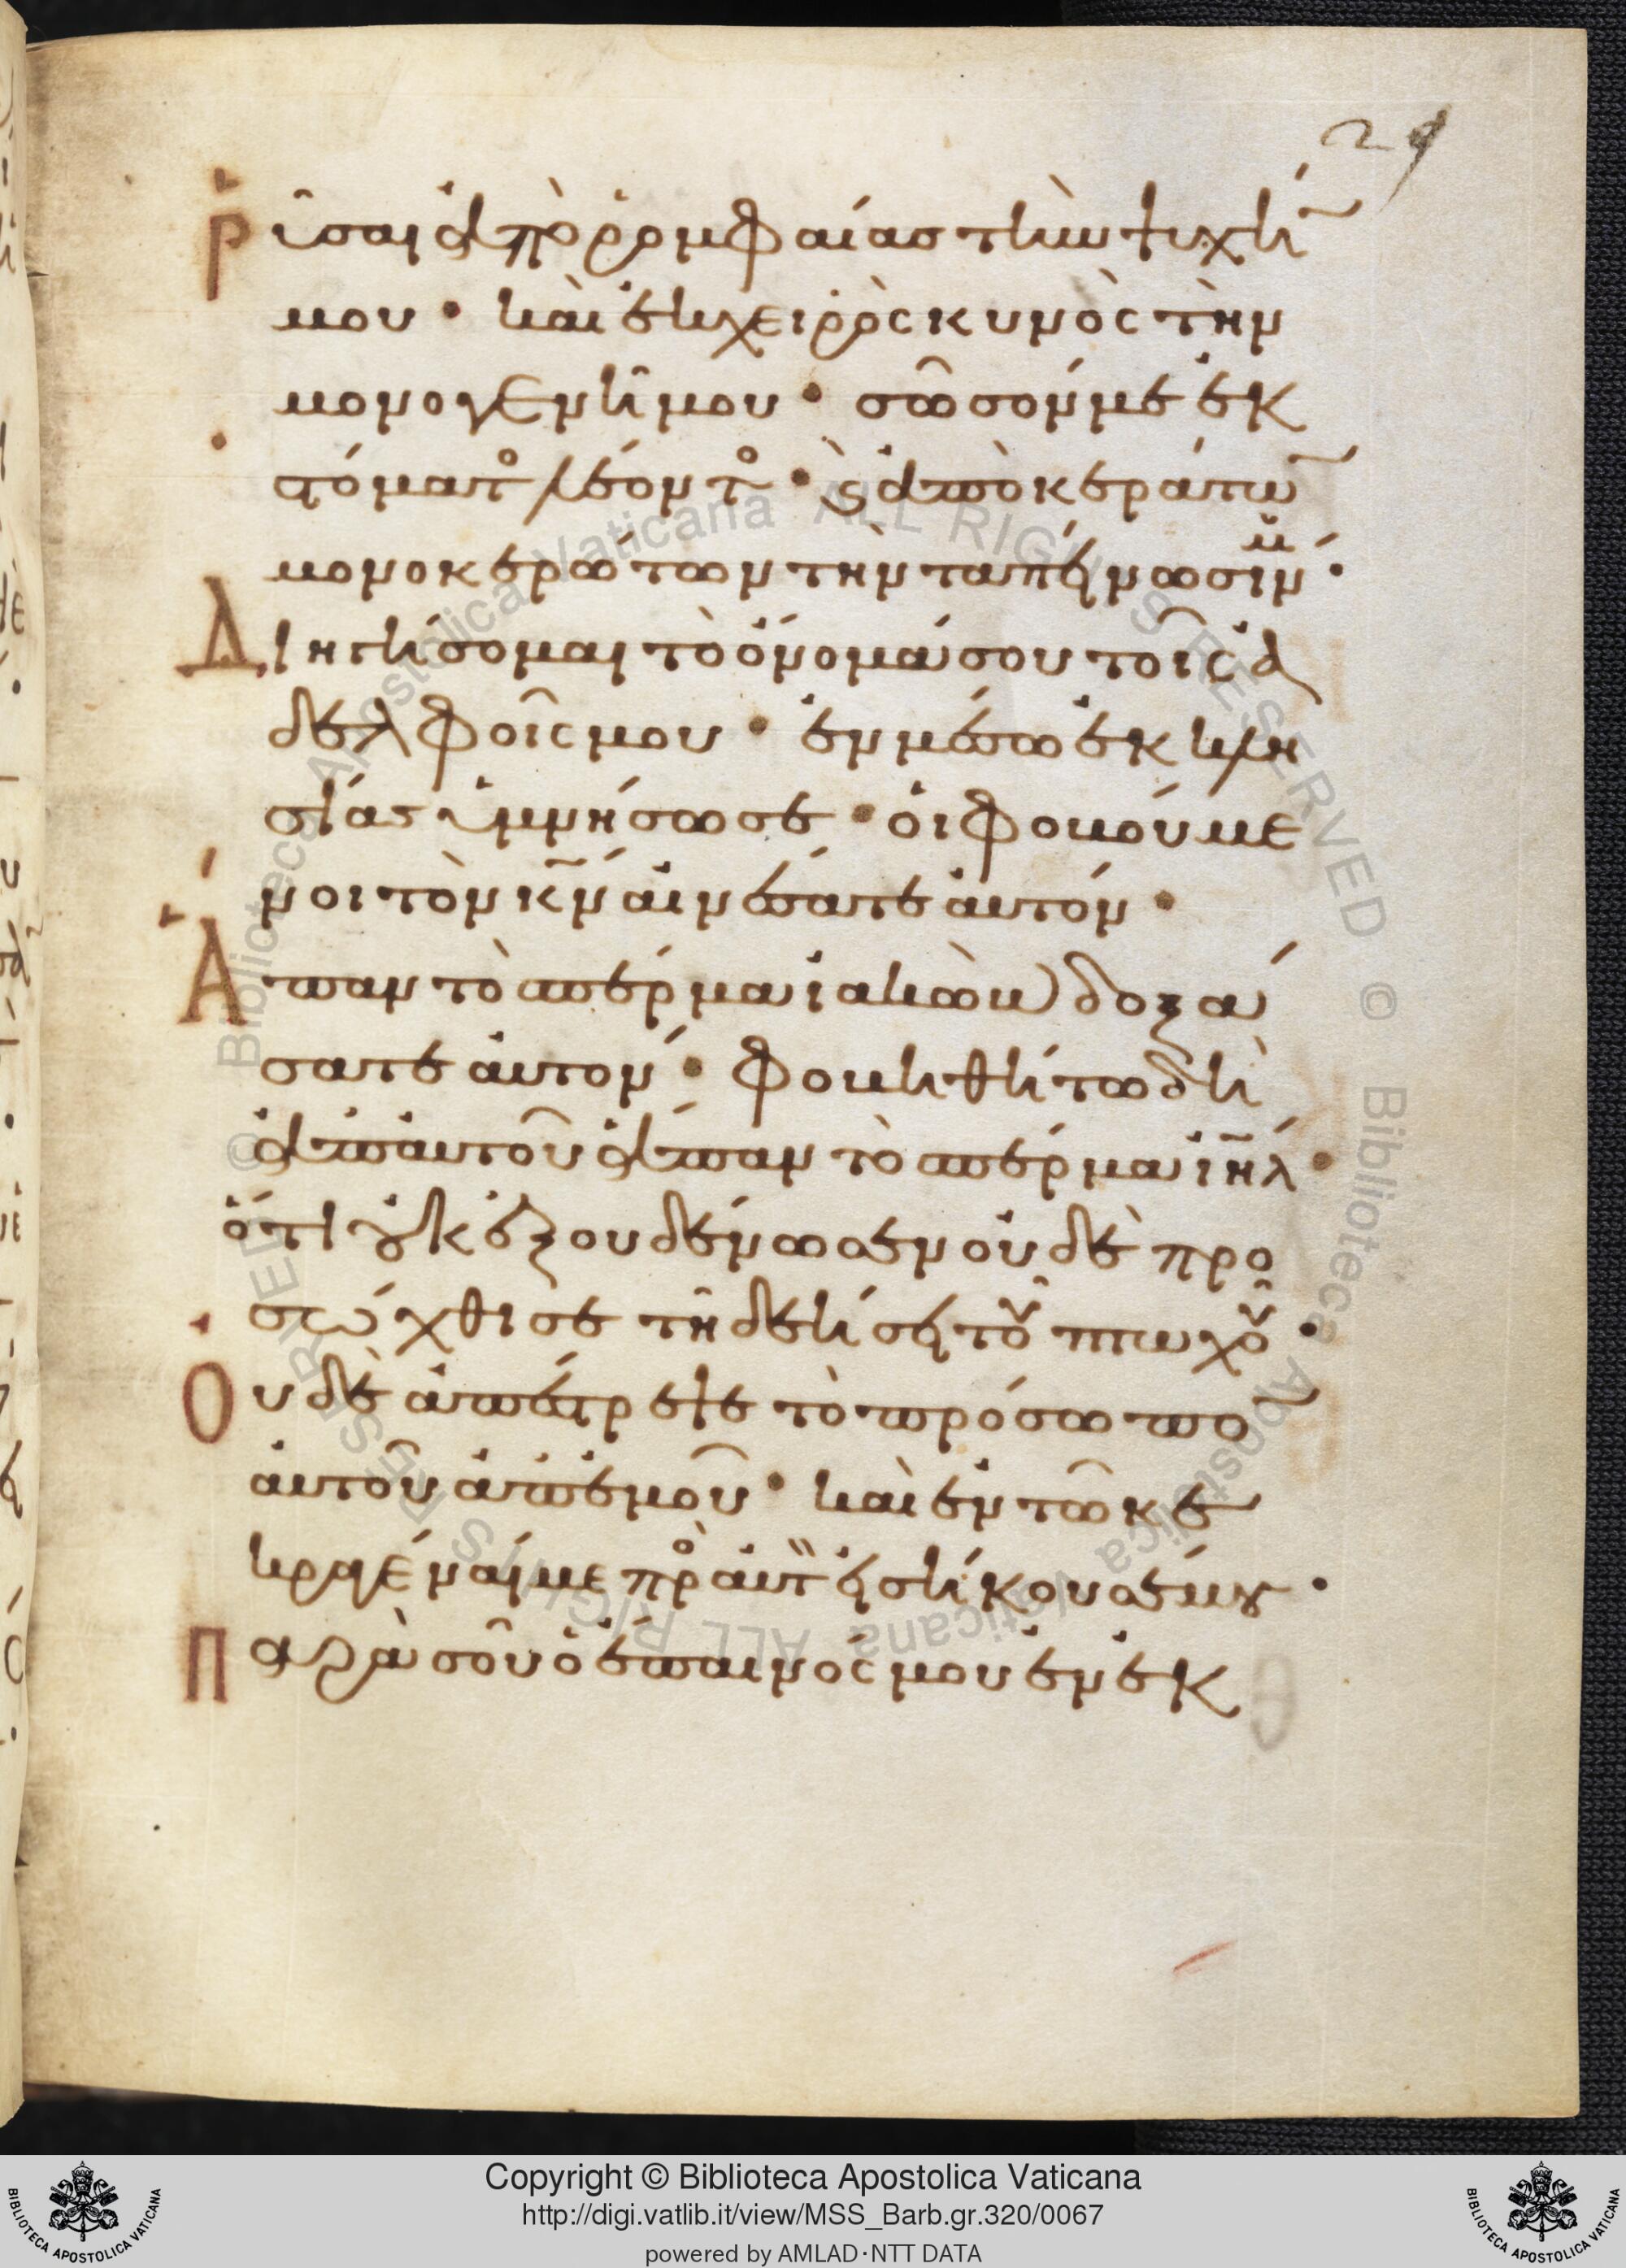 29
Ῥῦσαι ἀπὸ ῥομφαίας τὴν ψυχὴ
μου · καὶ ἐκ χειρὸς κυνὸς τὴν
μονογενῆ μου · σῶσόν με ἐκ
στόματος λέοντος · καὶ ἀπὸ κεράτω
μονοκερώτων τὴν ταπείνωσίν μου ·
Διηγήσομαι τὸ ὄνομά σου τοῖς ἀ
δελφοῖς μου · ἐν μέσω ἐκκλη
σίας ὑμνήσω σε · οἱ φοβούμε
νοι τὸν κν αἰνέσατε αὐτόν ·
Ἅπαν τὸ σπέρμα ἰακὼβ δοξά
σατε αὐτόν · φοβηθήτω δὴ
ἀπ αὐτοῦ ἅπαν τὸ σπέρμα ιηλ ·
ὅτι οὐκ ἐξουδένωσεν οὐδὲ προ
σώχθισε τῆ δεήσει τοῦ πτωχοῦ ·
Οὐδὲ ἀπέστρεψε τὸ πρόσωπο
αὐτοῦ ἀπ ἐμοῦ · καὶ ἐν τῶ κε
κραγέναι με πρὸς αὐτὸν εἰσήκουσέ μου ·
Παρὰ σοῦ ὁ ἔπαινός μου ἐν ἐκ
Copyright © Biblioteca Apostolica Vaticana
http://digi.vatlib.it/view/MSS_Barb.gr.320/0067
powered by AMLAD·NTT DATA
BIBLIOTECA APOSTOLICA VATICANA
BIBLIOTECA APOSTOLICA VATICANA